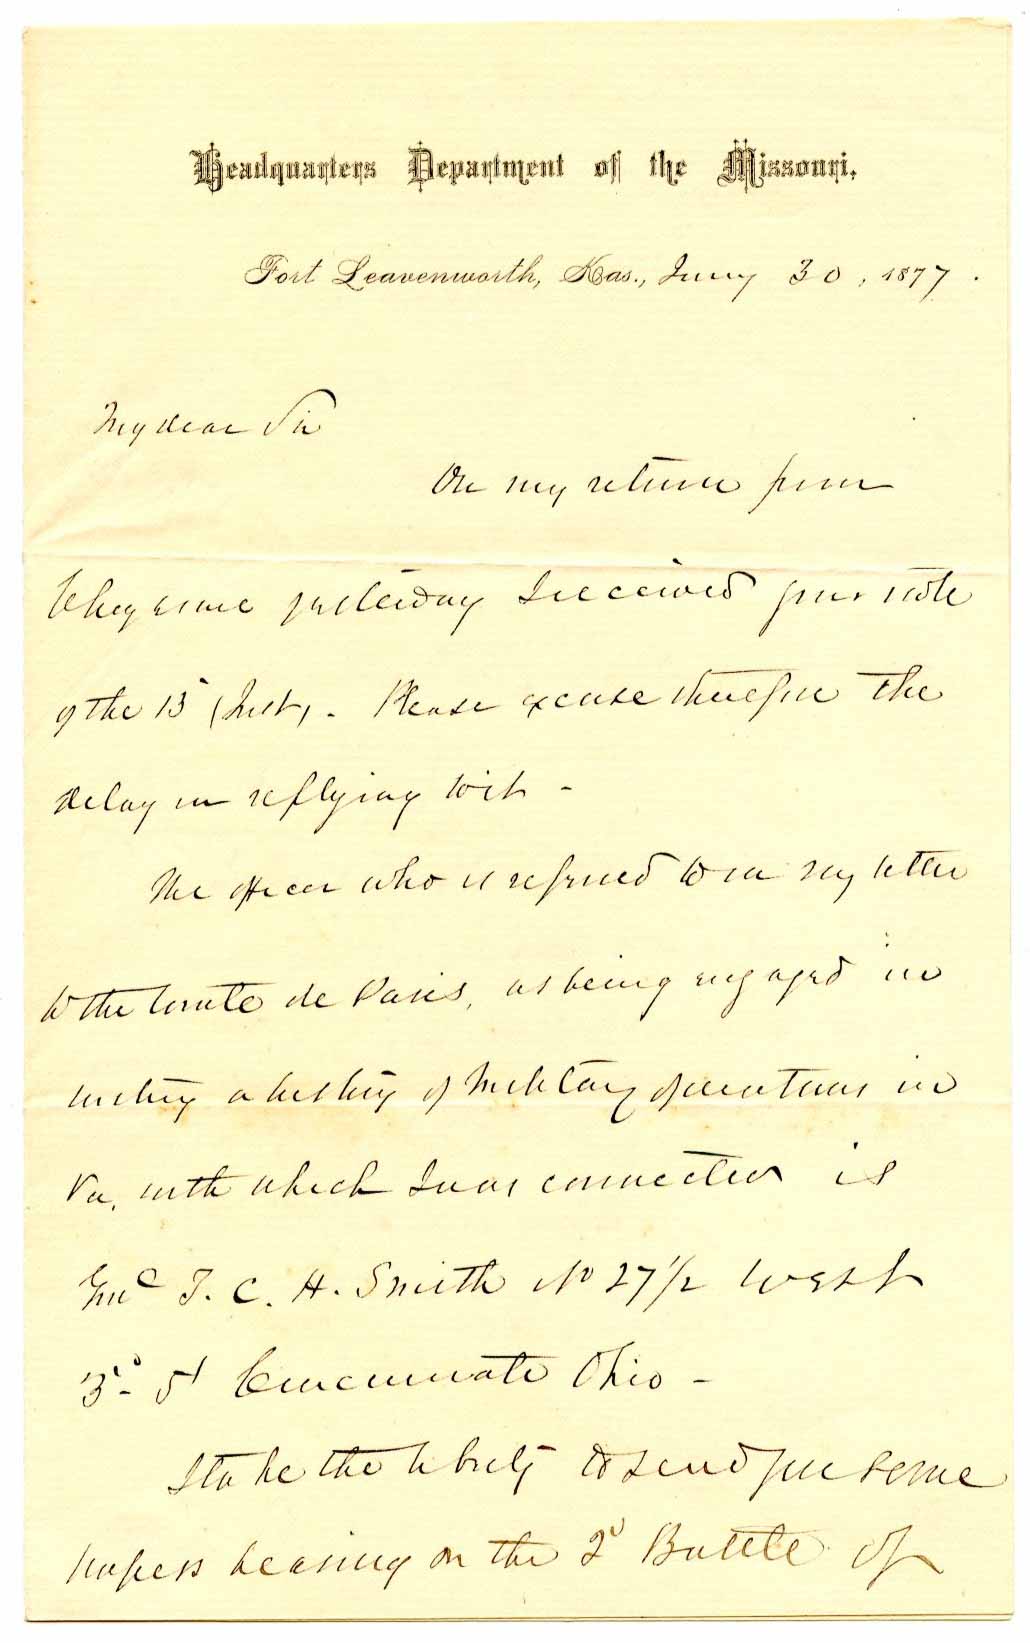 Headquarters Department of the Missouri.
Fort Leavenworth, Kas., Juny 30, 1877.
My dear Sir
On my return from
Cheyenne yesterday I received your note
of the 15 (Inst). Please excuse therefore the
delay in replying to it -
The officer who is referred to in my letter
to the Comte de Paris, as being engaged in
writing a history of Military operations in
Va. with which I was connected is
Genl T. C. H. Smith No 27 1/2 West
3d St Cincinnati Ohio -
I take the liberty to send you some
papers bearing on the 2d Battle of